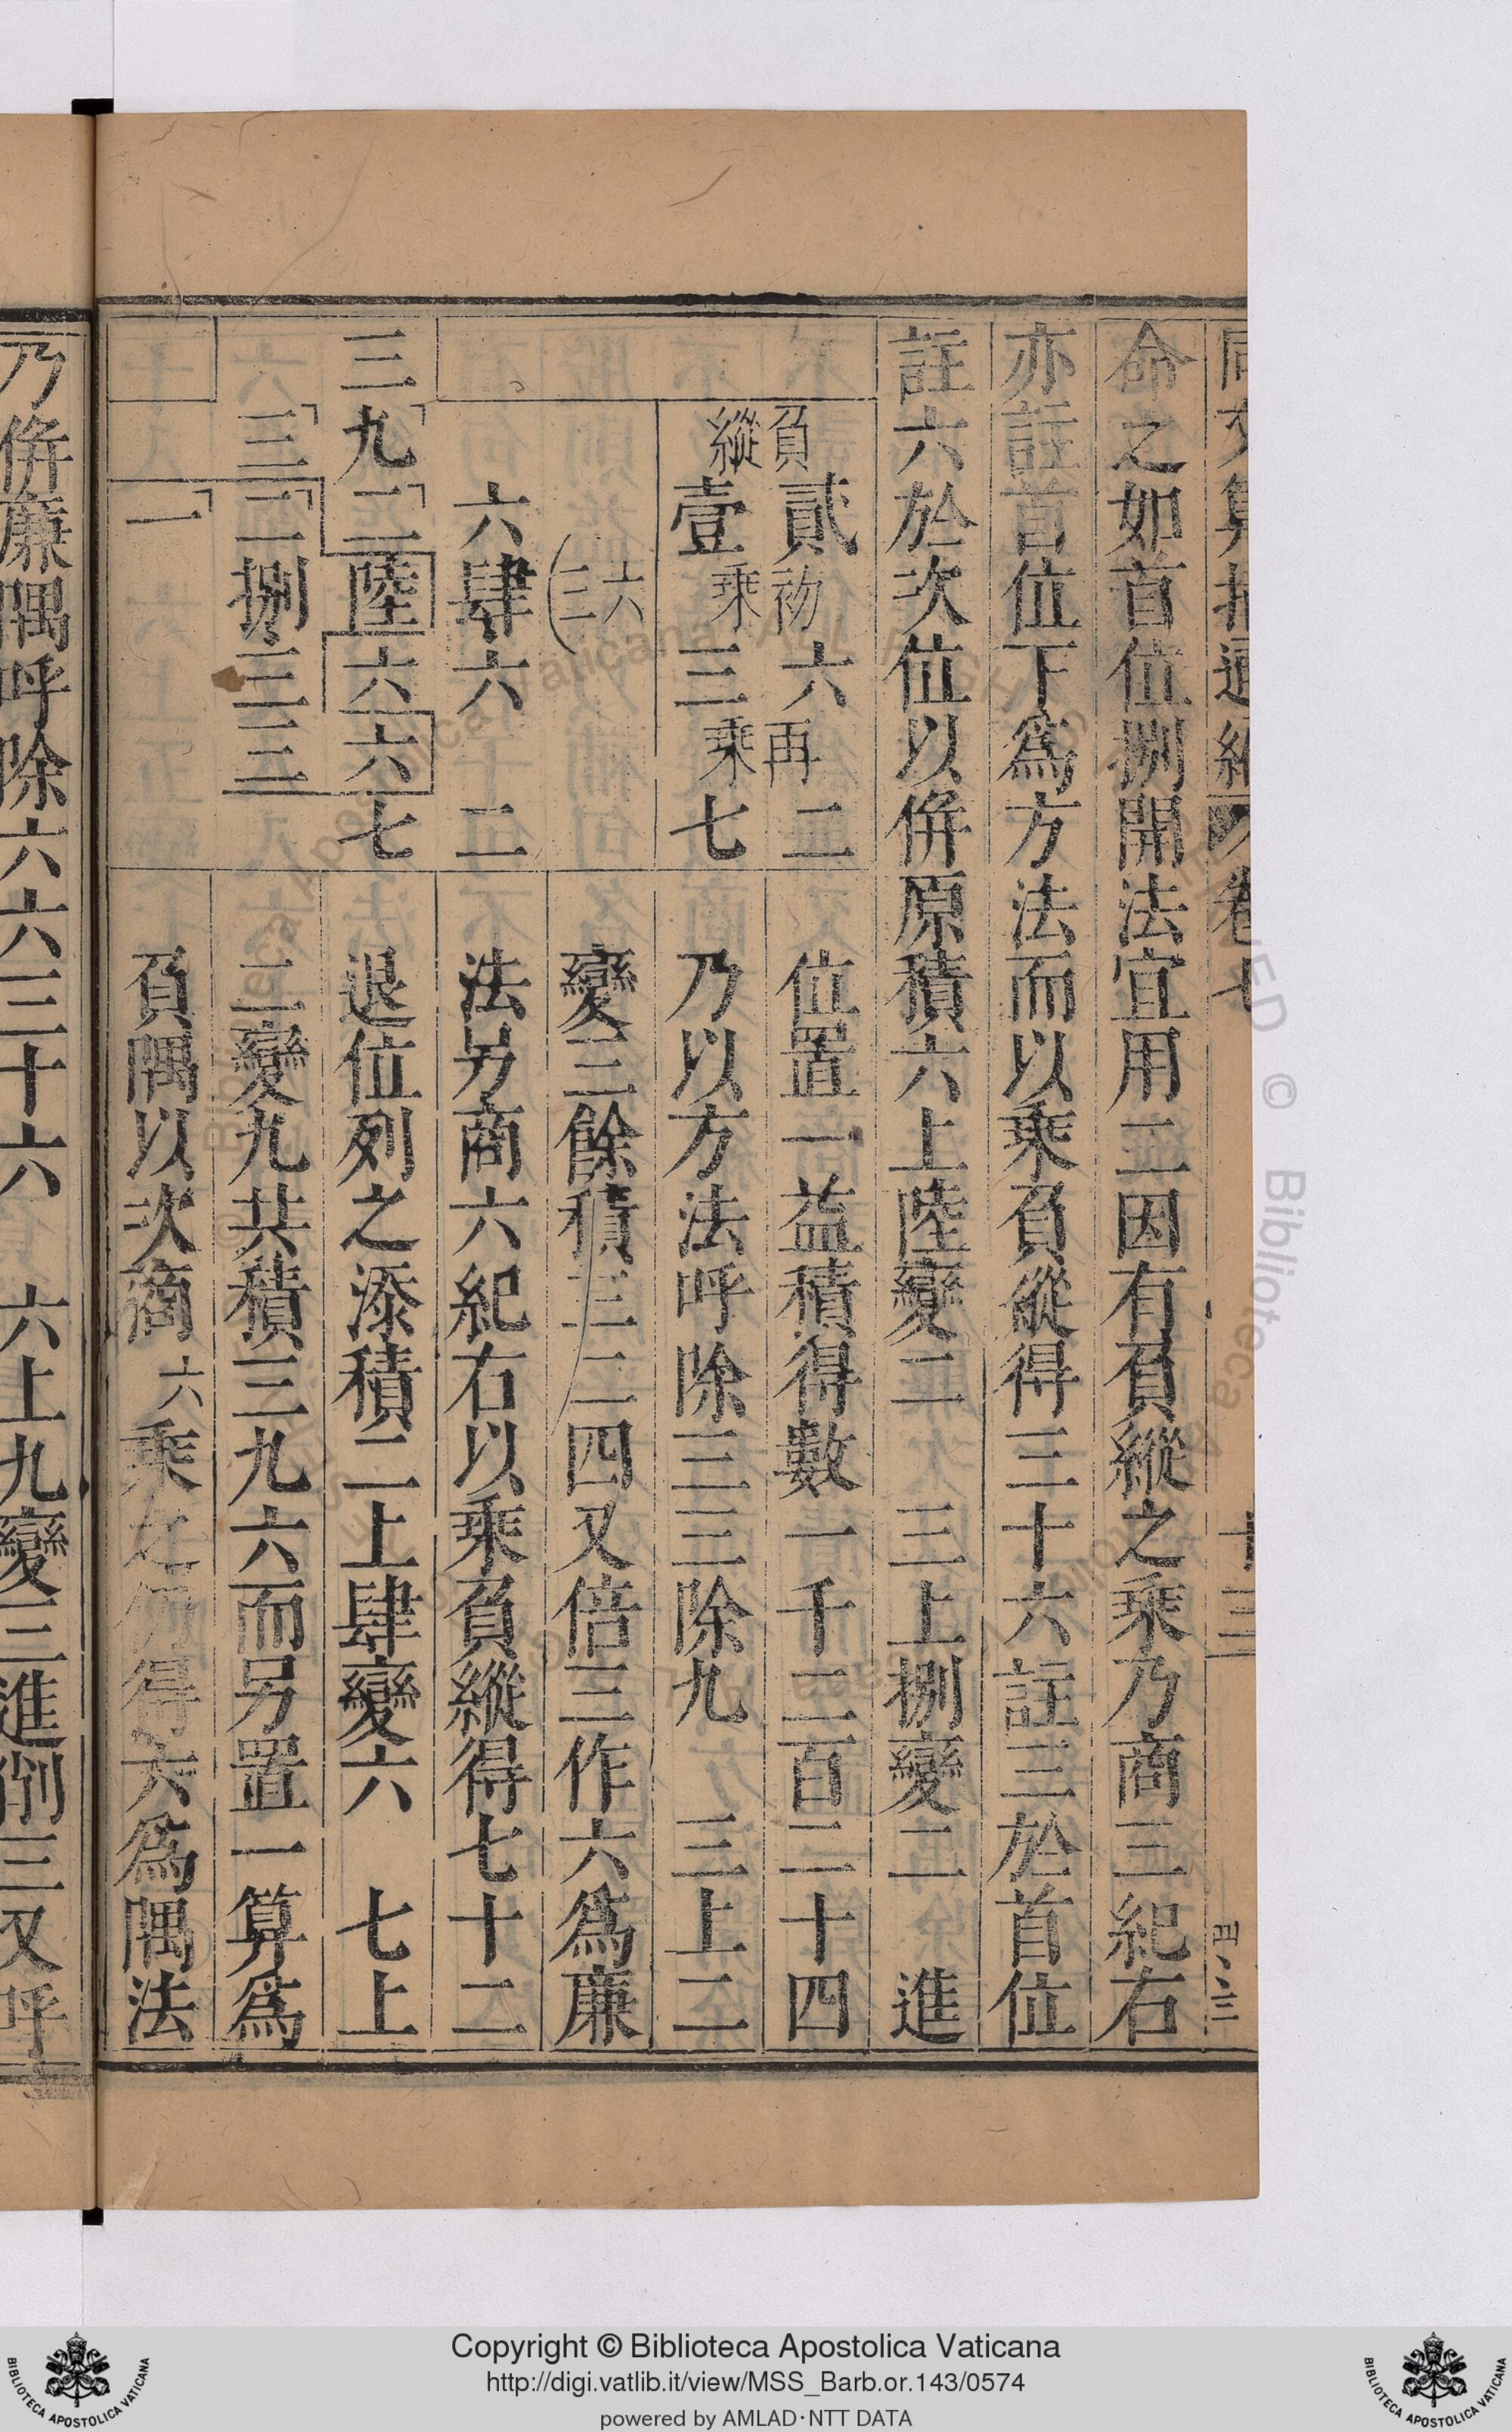 同文算指通編 卷七 十三
命之如首位捌開法宜用二因有負縱之乘乃商三紀右
亦註首位下為方法而以乘負縱得三十六註三於首位
註六於次位以併原積六上陸變二 三上捌變二 進
負縱
貳 初乘 六 再乘 二
位置一益積得數一千二百二十四
壹 三 七
乃以方法呼除三三除九 三上二
六三二
變三餘積三二四又倍三作六為廉
六肆六 二
法另商六紀右以乘負縱得七十二
三九二陸六六七
退位列之添積二上肆變六 七上
三二捌三三
二變九共積三九六而另置一算為
一
負隅以次商六乘之得六為隅法
乃併廉隅呼除六六三十六 六上九變三進削三又呼
Copyright © Biblioteca Apostolica Vaticana
http://digi.vatlib.it/view/MSS_Barb.or.143/0574
powered by AMLAD·NTT DATA
BIBLIOTECA APOSTOLICA VATICANA
BIBLIOTECA APOSTOLICA VATICANA